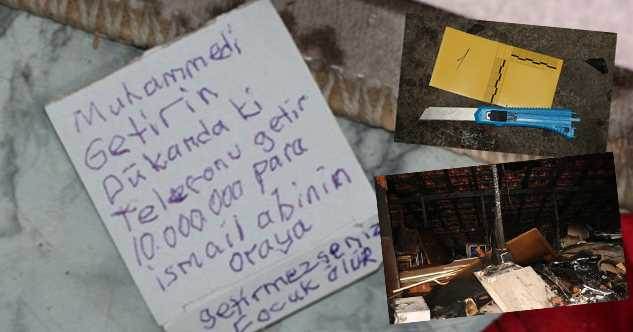 Muhammedi
Getirin
Dükanda ki
Telefonu getir
10.000.000 para
ismail abinin
oraya
getirmezseniz
çocuk ölür
1